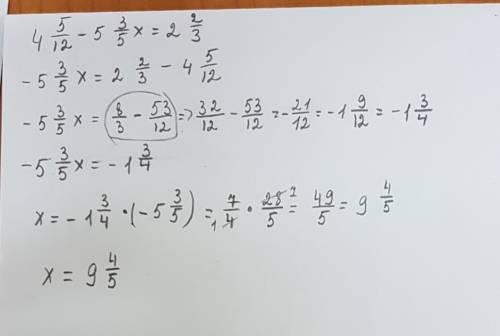 4 5/12 - 5 3/5 x = 2 2/3
-5 3/5 x = 2 2/3 - 4 5/12
-5 3/5 x = 8/3 - 53/12 => 32/12 - 53/12 = -21/12 = -1 9/12 = -1 3/4
-5 3/5 x = -1 3/4
x = -1 3/4 · (-5 3/5) = 7/4 1 · 28/5 7 = 49/5 = 9 4/5
x = 9 4/5